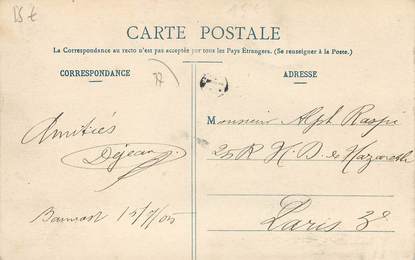 15 €
CARTE POSTALE
La Correspondance au recto n'est pas acceptée par tous les Pays Étrangers. (Se renseigner à la Poste.)
CORRESPONDANCE
ADRESSE
Amitiés
Déjean
Monsieur Alph
25 R N. D. de Nazareth
Paris 3e